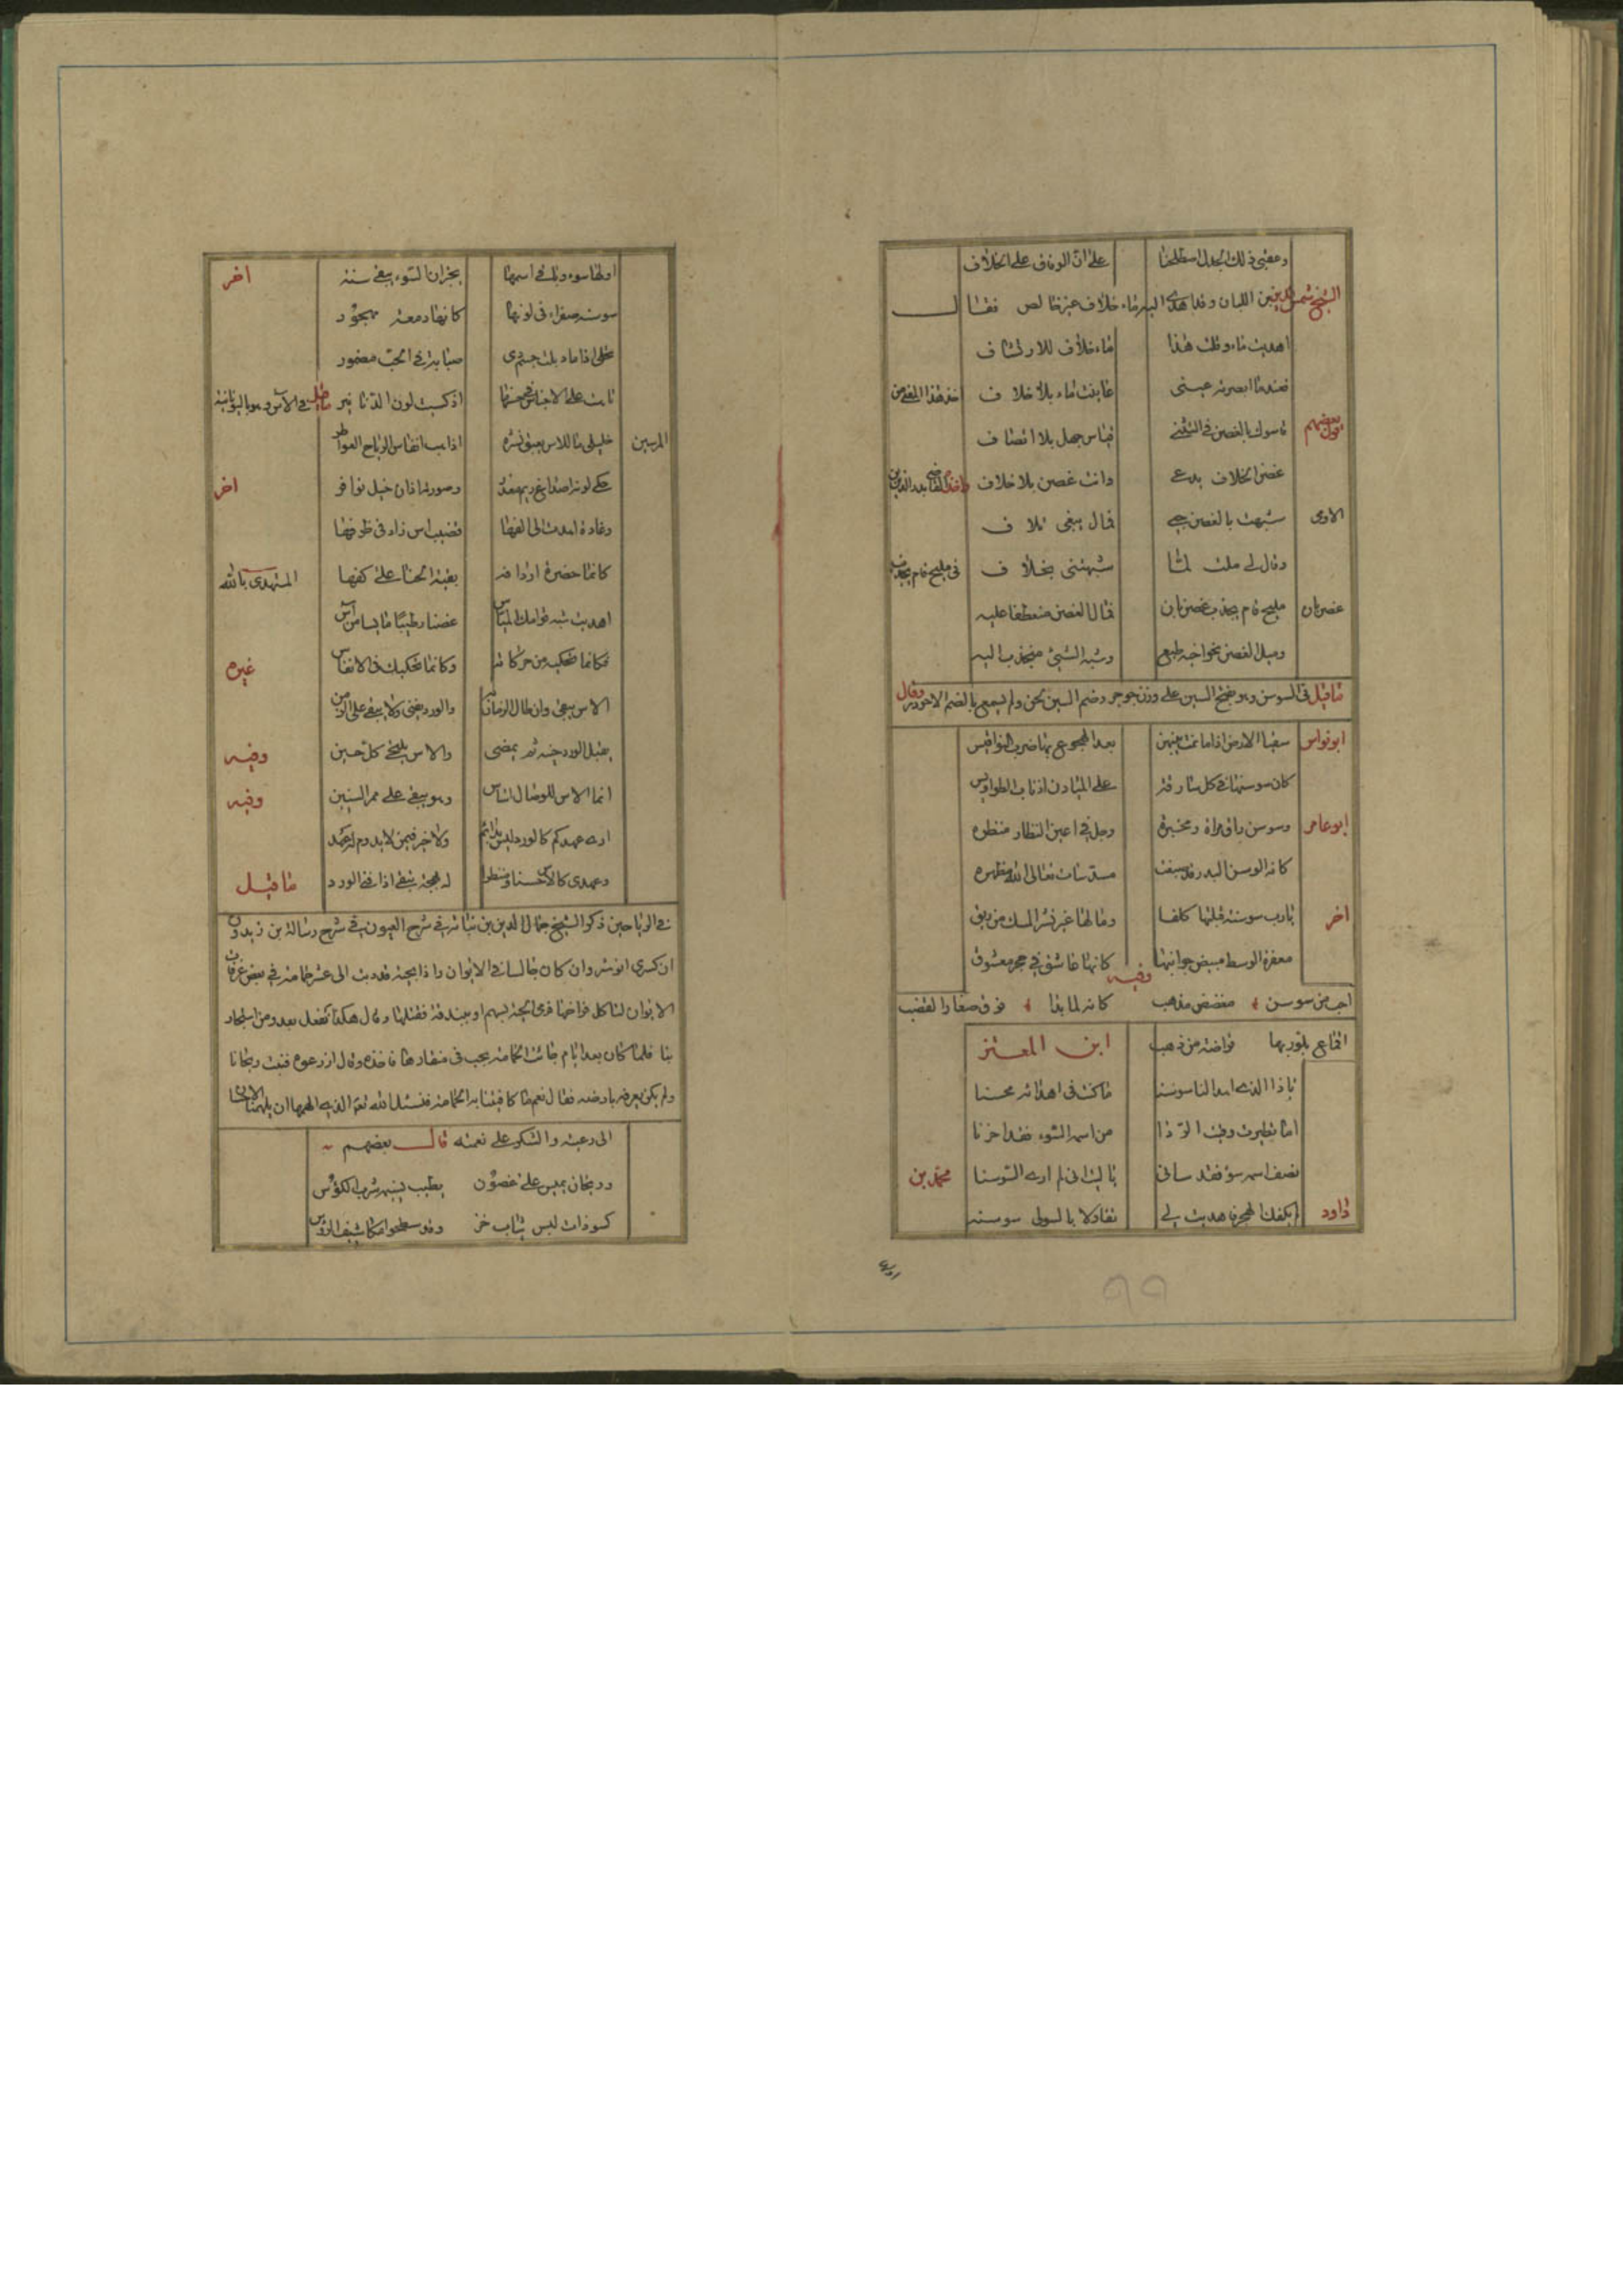 وعقبى ذلك الجدل اصطلحنا على ان الوفاق على الخلاف
الشيخ شمس الدين بن اللبان وقد اهدى اليه ماء خلاف غير خالص فقال
اهديت ماء وقلت هذا ماء خلاف للارتشاف
فعندما ابصرته عيني عاينت ماء بلا خلاف اخذ هذا المعنى من
قول بعضهم قاسوك بالغصن في التثني قياس جهل بلا انصاف
غصن الخلاف يدعى وانت غصن بلا خلاف واخذه القاضي بدر الدين
شبهت بالغصن حبي فقال يبغي تلاف
وقال لي ملت لما شبهتني بخلاف في مليح قام يجذب
غصن بان مليح قام يجذب غصن بان فمال الغصن منعطفا عليه
وميل الغصن نحو اخيه طبع وشبه الشيئ منجذب اليه
ما قيل في السوسن وهو بفتح السين على وزن جوهر وضم السين لحن ولم يسمع بالضم الا جؤذر وقال
ابو نواس سقيا لارض اذا ما نمت نبهني بعد الهجوع بها ضرب النواقيس
كان سوسنها في كل شارقة على الميادين اذناب الطواويس
ابو عامر وسوسن راق مراه ومخبره وجل في اعين النظار منظره
اخر يا رب سوسنة قبلتها كلفا وما لها غير نشر المسك من ريق
مصفرة الوسط مبيض جوانبها كانها عاشق في حجر معشوق
وفيه
سوسن مفضض مذهب كانه لما بدا فوق صغار القضب
اقماع بلور بها قراضة من ذهب ابن المعتز
يا ذا الذي اهدى لنا سوسنا ما كنت في اهدائه محسنا
من اسمه السوء فقد احزنا
نصف اسمه سوء فقد ساني يا ليت اني لم ارى السوسنا محمد بن
داود لم يكفك الهجر فاهديت لي تفاولا بالسوء لي سوسنه
اولها سوء وباقي اسمها يخبر ان السوء يبقى سنه اخر
سوسنة صفراء في لونها كانها دمعة مهجور
صبابة في الحب معمور
اذ كسبت لون الدنانير ما قيل في الآس وهو باليونانية
المرسين خليلي ما للاس يعبق نشره اذا هب انفاس الرياح العواطر
حكى لونه اصداغ ريم معذر وصورته اذان خيل نوافر اخر
وغادة اهدت الى الفها قضيب اس زاد في ظرفها
كانما خضرة اوراقه بقية الحنا على كفها المهتدي بالله
اهديت شبه قوامك المياس غصنا رطيبا ناعما من آس
فكانما تحكيه من حركاته وكانما يحكيك في الانفاس غيره
الاس يبقى وان طال الزمان به والورد يفنى ولا يبقى على الزمن
يقبل الورد حينه ثم يمضي والاس يلبث كل حين وفيه
انما الاس للوصال اساس وهو يبقى على ممر السنين وفيه
ارى عهدكم كالورد ليس بدائم ولا خير فيمن لا يدوم له عهد
وعهدي كالاس حسنا ومنظرا له بهجة تبقى اذا فني الورد ما قيل
في الرياحين ذكر الشيخ جمال الدين بن نباتة في سرح العيون في شرح رسالة بن زيدون
ان كسرى انوشروان كان جالسا في الايوان واذا بحية قد دبت الى عش حمامة في بعض شرفات
الايوان لتاكل فراخها فرمى الحية بسهم او ببندقة فقتلها وقال هكذا نفعل بعدو من استجار
بنا فلما كان بعد ايام جاءت الحمامة بحب في منقادها فاخذه وقال ازرعوه فنبت ريحانا
ولم يكن يعرف بارضه فقال نعم ما كافيتنا به الحمامة فنسئل الله تعم الذي الهمها ان يلهمنا الاحسان
الى رعيته والشكر على نعمته قال بعضهم
وريحان يميس على غصون يطيب بنشره شرب الكؤس
كسودان لبس ثياب خز وقد